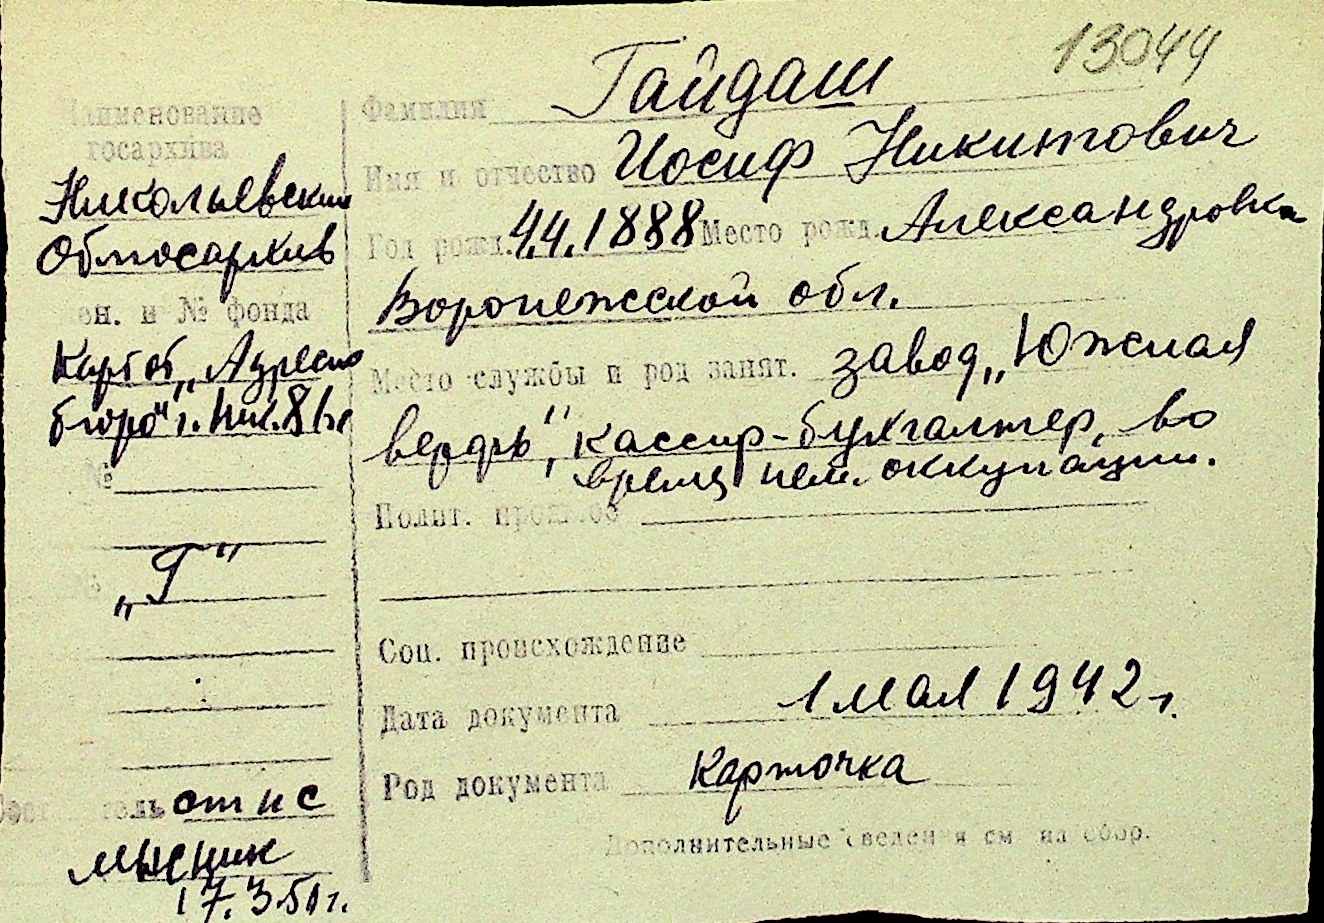 13044
Фамилия Гайдаш
Имя и отчество Иосиф Никитович
Год рожд. 4.4.1888 Место рожд. Александровка
Воронежской обл.
Место службы и род занят. завод „Южная
верфь", кассир-бухгалтер, во
время нем. оккупации.
Полит. прошлое
Соц. происхождение
Дата документа 1 мая 1942 г.
Род документа Карточка
Дополнительные сведения см. на обор.
Наименование
госархива
Николаевский
Облгосархив
№ фонда
„Адресно
бюро" г. Ник.
№
„Г"
17.3.50 г.